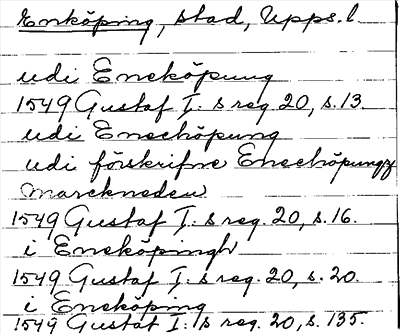 Enköping, stad, Upps. l.
udi Eneköpung
1549 Gustaf I: s reg. 20, s. 13.
udi Enechöpung
udi förskrifne Enechöpungz
Marckneden
1549 Gustaf I: s reg. 20, s. 16.
i Eneköpingh
1549 Gustaf I: s reg. 20, s. 20.
i Eneköping
1549 Gustaf I: s reg. 20, s. 135.